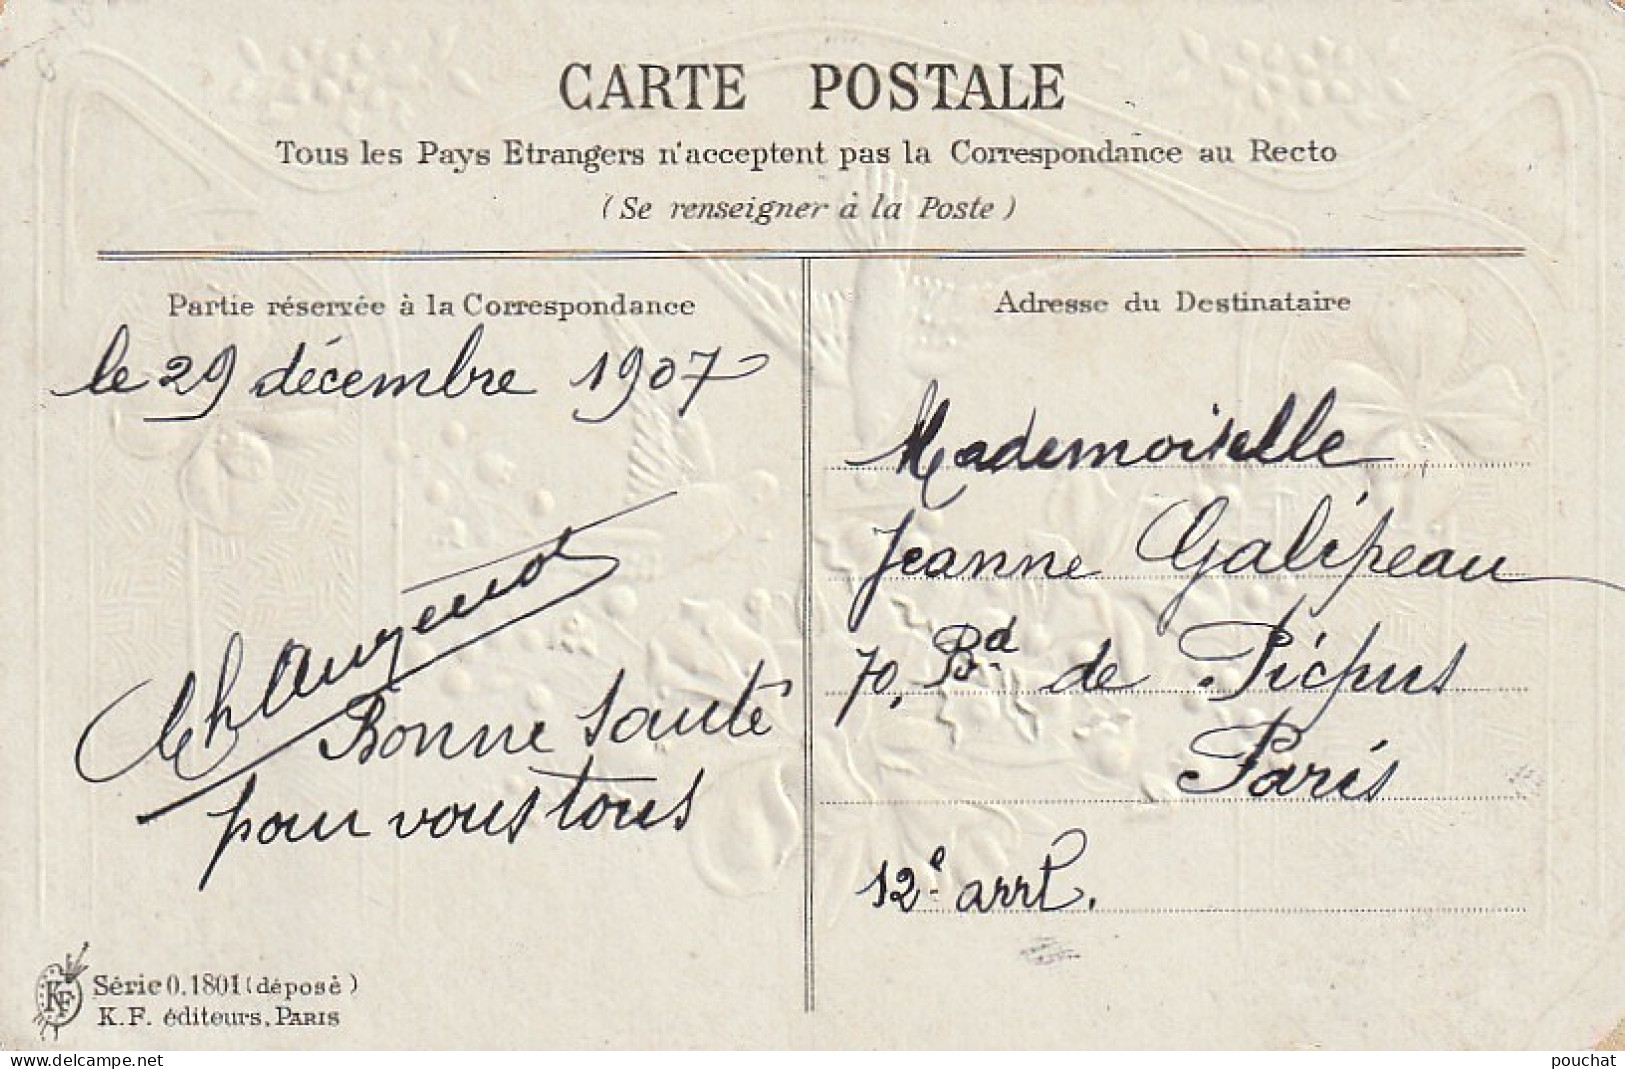 CARTE POSTALE
Tous les Pays Etrangers n'acceptent pas la Correspondance au Recto
(Se renseigner à la Poste)
Partie réservée à la Correspondance
le 29 décembre 1907
Bonne Santé
pour vous tous
Série 0.1801 (déposé)
K.F. éditeurs, PARIS
KF
Adresse du Destinataire
Mademoiselle
Jeanne Galipeau
70, Bd de Picpus
Paris
12e arrt.
www.delcampe.net
pouchat